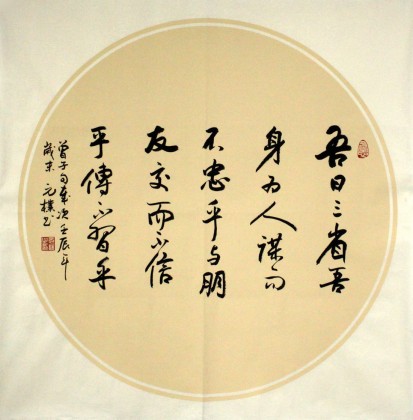 吾日三省吾
身为人謀而
不忠乎与朋
友交而不信
乎傳不習乎
曾子句歲次壬辰年
歲末元樸书